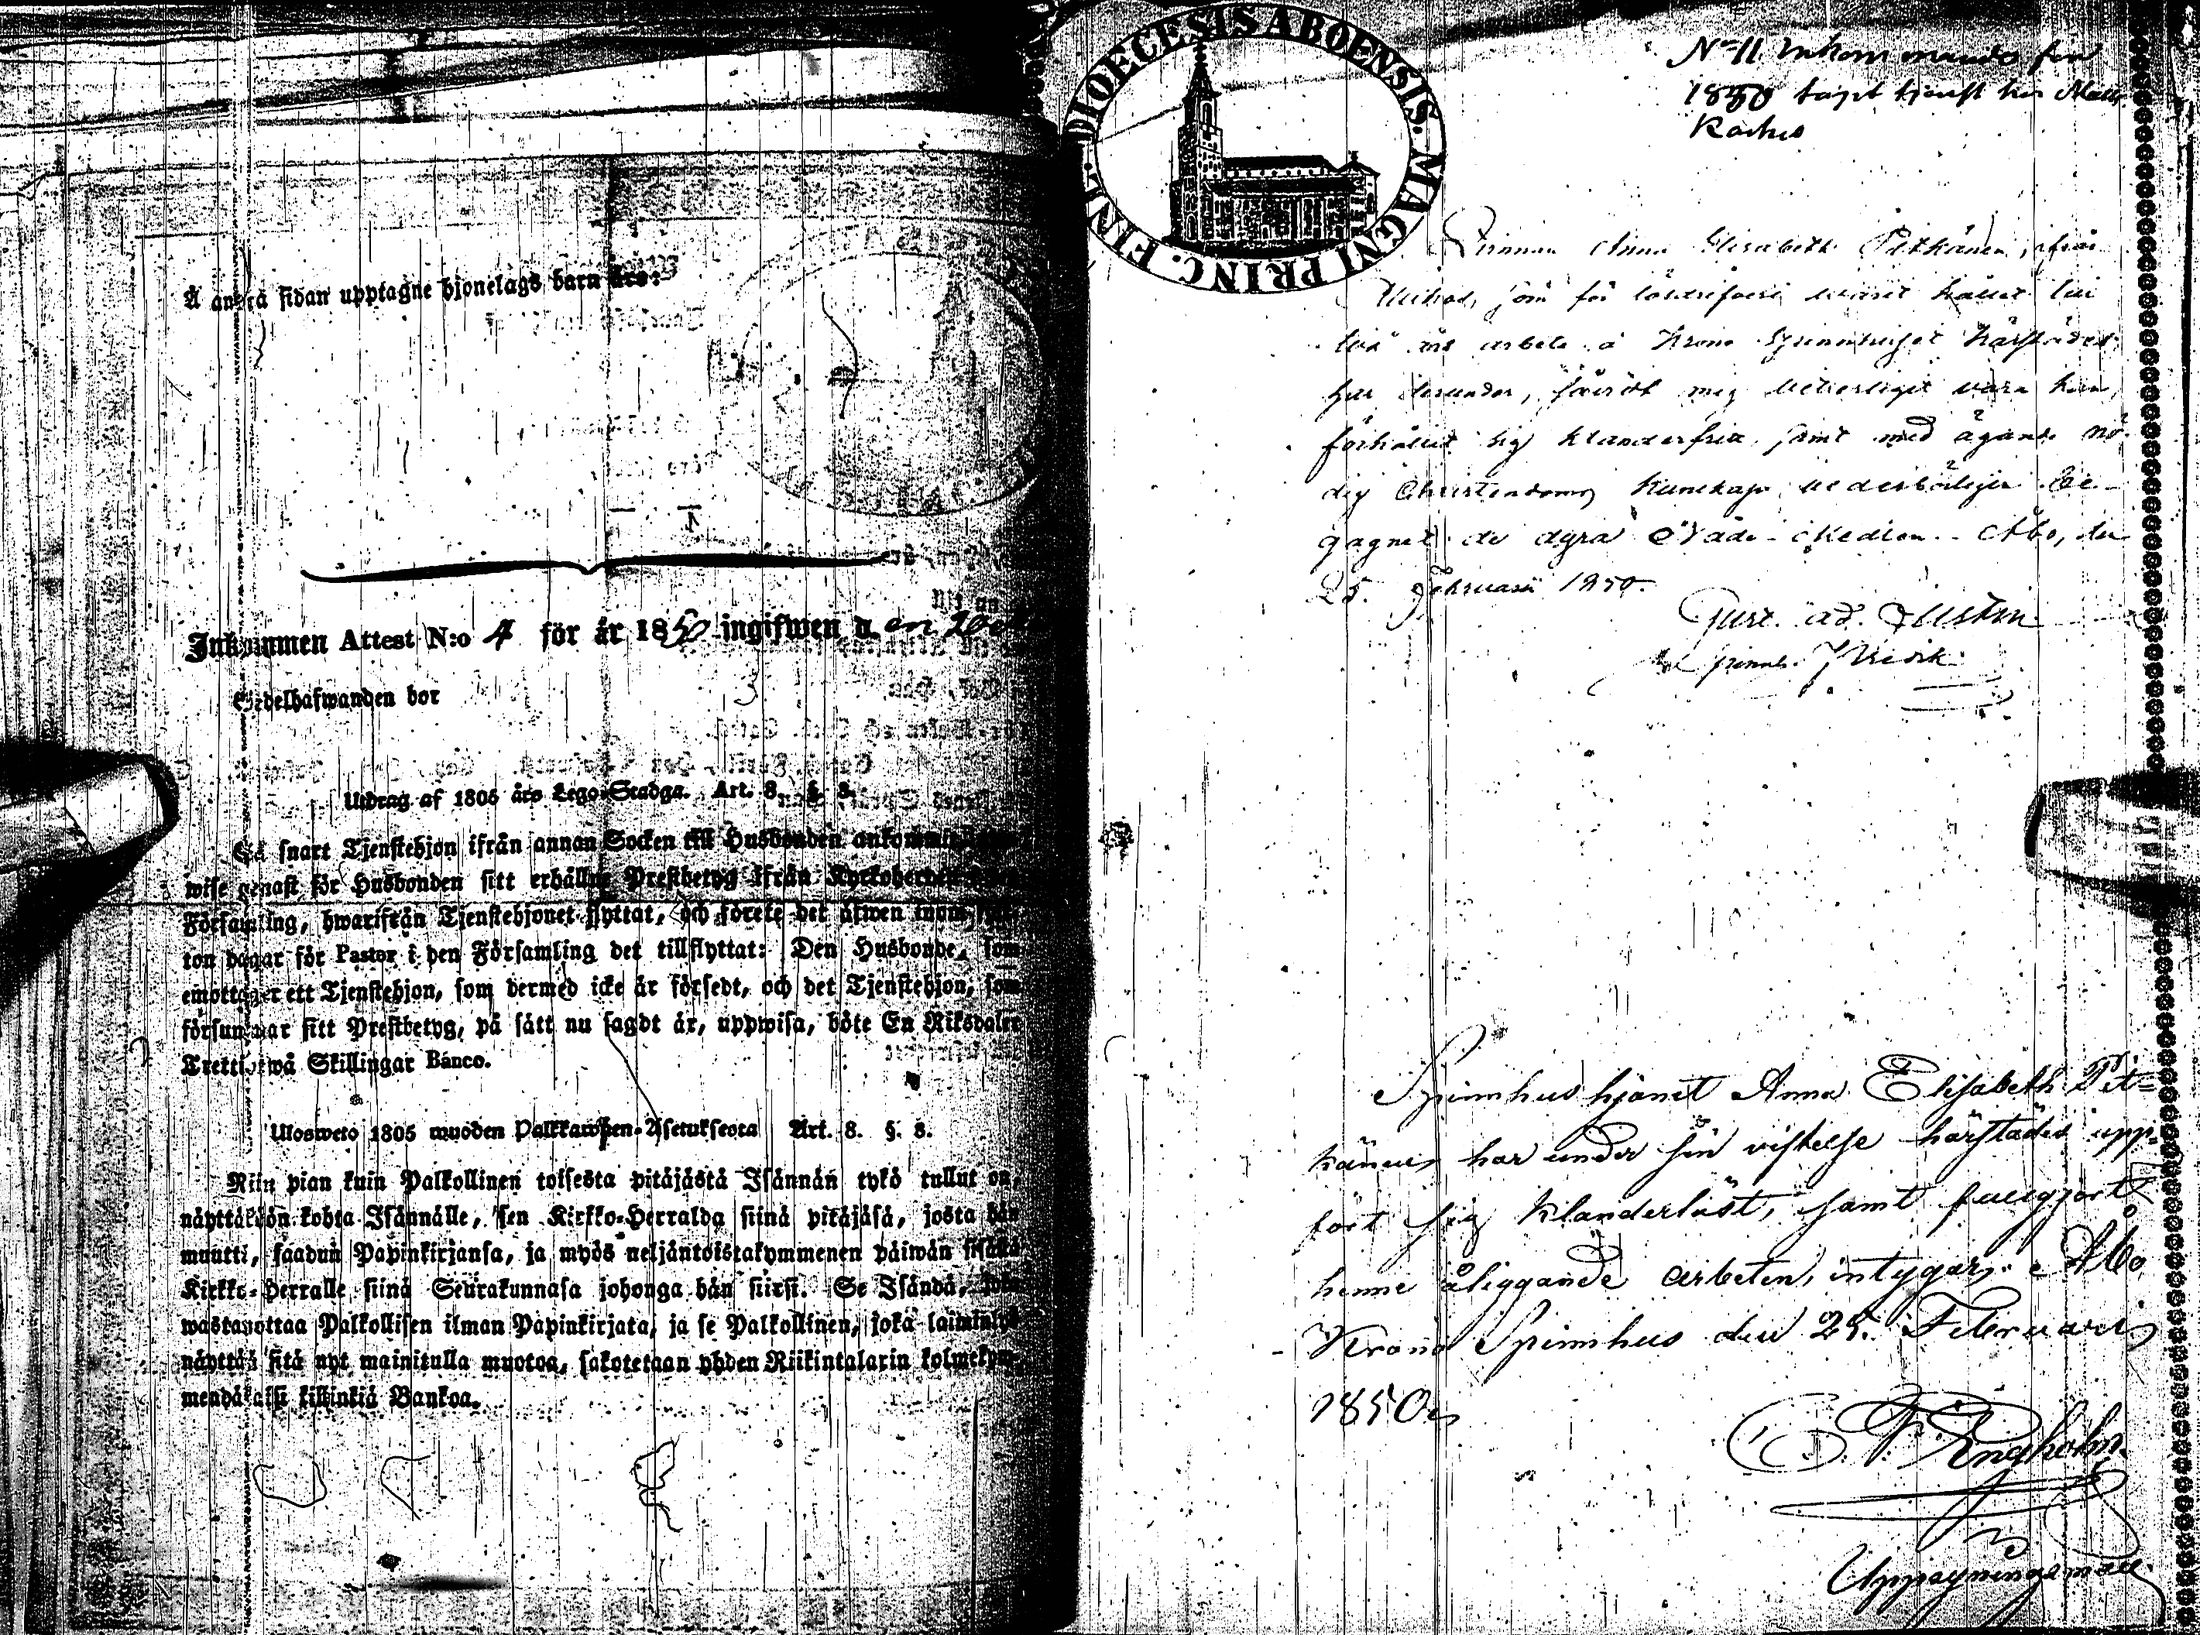 Å andra sidan upptagne hjonelags barn äro:
Inkommen Attest N:o 4 för år 1850 ingifwen d. en
Sedelhafwanden bor
Utdrag af 1805 års Lego-Stadga. Art. 8. §. 8.
Så snart Tjenstehjon ifrån annan Socken till Husbonden ankommit,
wise genast för Husbonden sitt erhållna Prestbetyg ifrån Kyrkoherden
Församling, hwarifrån Tjenstehjonet flyttat, och förete det äfwen inom
ton dagar för Pastor i den Församling det tillflyttat: Den Husbonde, som
emottager ett Tjenstehjon, som dermed icke är försedt, och det Tjenstehjon, som
försummar sitt Prestbetyg, på sätt nu sagdt är, uppwisa, böte En Riksdaler
Trettiotwå Skillingar Banco.
Ulosweto 1805 wuoden Palkkawäen-Asetuksesta Art. 8. §. 8.
Niin pian kuin Palkollinen toisesta pitäjästä Isännän tykö tullut on,
näyttäköön kohta Isännälle, sen Kirkko-Herralda siinä pitäjäsä, josta hän
muutti, saadun Papinkirjansa, ja myös neljäntoistakymmenen päiwän sisällä
Kirkko-Herralle siinä Seurakunnasa johonga hän siirsi. Se Isändä, joka
wastaanottaa Palkollisen ilman Papinkirjata, ja se Palkollinen, joka laiminlyö
näyttää sitä nyt mainitulla muotoa, sakotetaan yhden Riikintalarin kolmekym-
mendäkaksi killinkiä Bankoa.
DIOECESIS ABOENSIS. MAGNI PRINC. FINL.
N:o 11 Inkommandes för
1850 tagit tjenst hos Matts
Qvinnan Anna Elisabeth Pitkänen, ifrån
som för lösdrifveri warit
två års arbete å Krono Spinnhuset härstädes
har derunder, såvidt mig veterligit vara kan,
förhållit sig klanderfria, samt med ägande nö-
dig Christendoms Kunskap vederbörligen be-
gagnat de dyra Nådemedlen. Åbo, den
25. Februarii 1850.
Gust. ad.
Spinnh. Predik.
Spinnhushjonet Anna Elisabeth Pit=
känen, har under sin vistelse härstädes upp-
fört sig klanderlöst, samt fullgjort
henne åliggande arbeten, intygar, Åbo
Krono Spinnhus den 25. Februarii
1850.
Engholm
Uppsyningsman